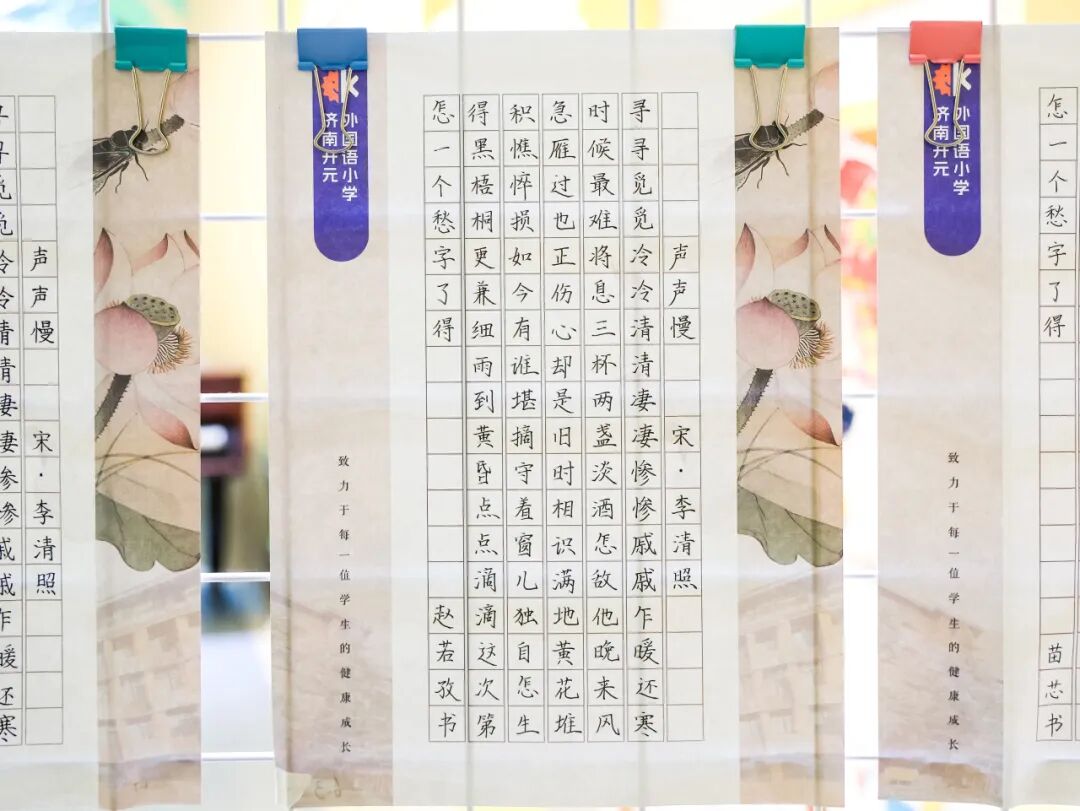 声声慢 宋·李清照
寻寻觅觅冷冷清清凄凄惨惨戚戚乍暖还寒
济南开元
外国语小学
声声慢 宋·李清照
寻寻觅觅冷冷清清凄凄惨惨戚戚乍暖还寒
时候最难将息三杯两盏淡酒怎敌他晚来风
急雁过也正伤心却是旧时相识满地黄花堆
积憔悴损如今有谁堪摘守着窗儿独自怎生
得黑梧桐更兼细雨到黄昏点点滴滴这次第
怎一个愁字了得 赵若孜书
致力于每一位学生的健康成长
济南开元
外国语小学
怎一个愁字了得 苗芯书
致力于每一位学生的健康成长